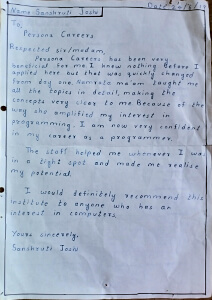 Name - Sanskruti Joshi
To,
Persona Careers
Respected sir/madam,
Persona Careers has been very
beneficial for me. I knew nothing before I
applied here but that was quickly changed
from day one. Namrata ma'am taught me
all the topics in detail, making the
concepts very clear to me. Because of the
way she amplified my interest in
programming. I am now very confident
in my career as a programmer.
The staff helped me whenever I was
in a tight spot and made me realise
my potential.
I would definitely recommend this
institute to anyone who has an
interest in computers.
Yours sincerely,
Sanskruti Joshi